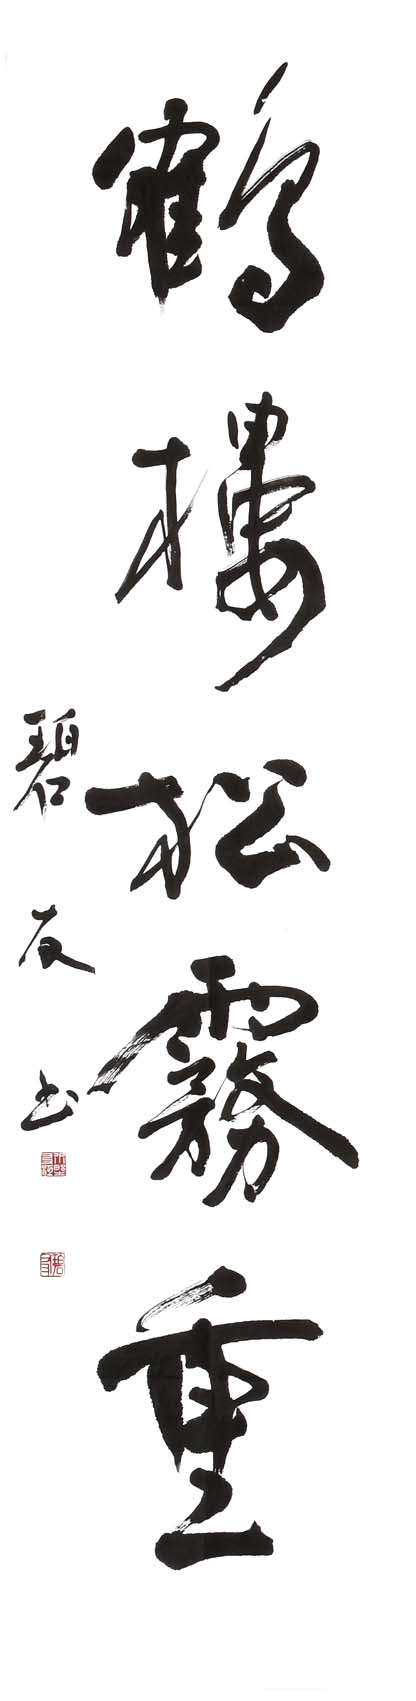 鶴樓松霧重
碧友书